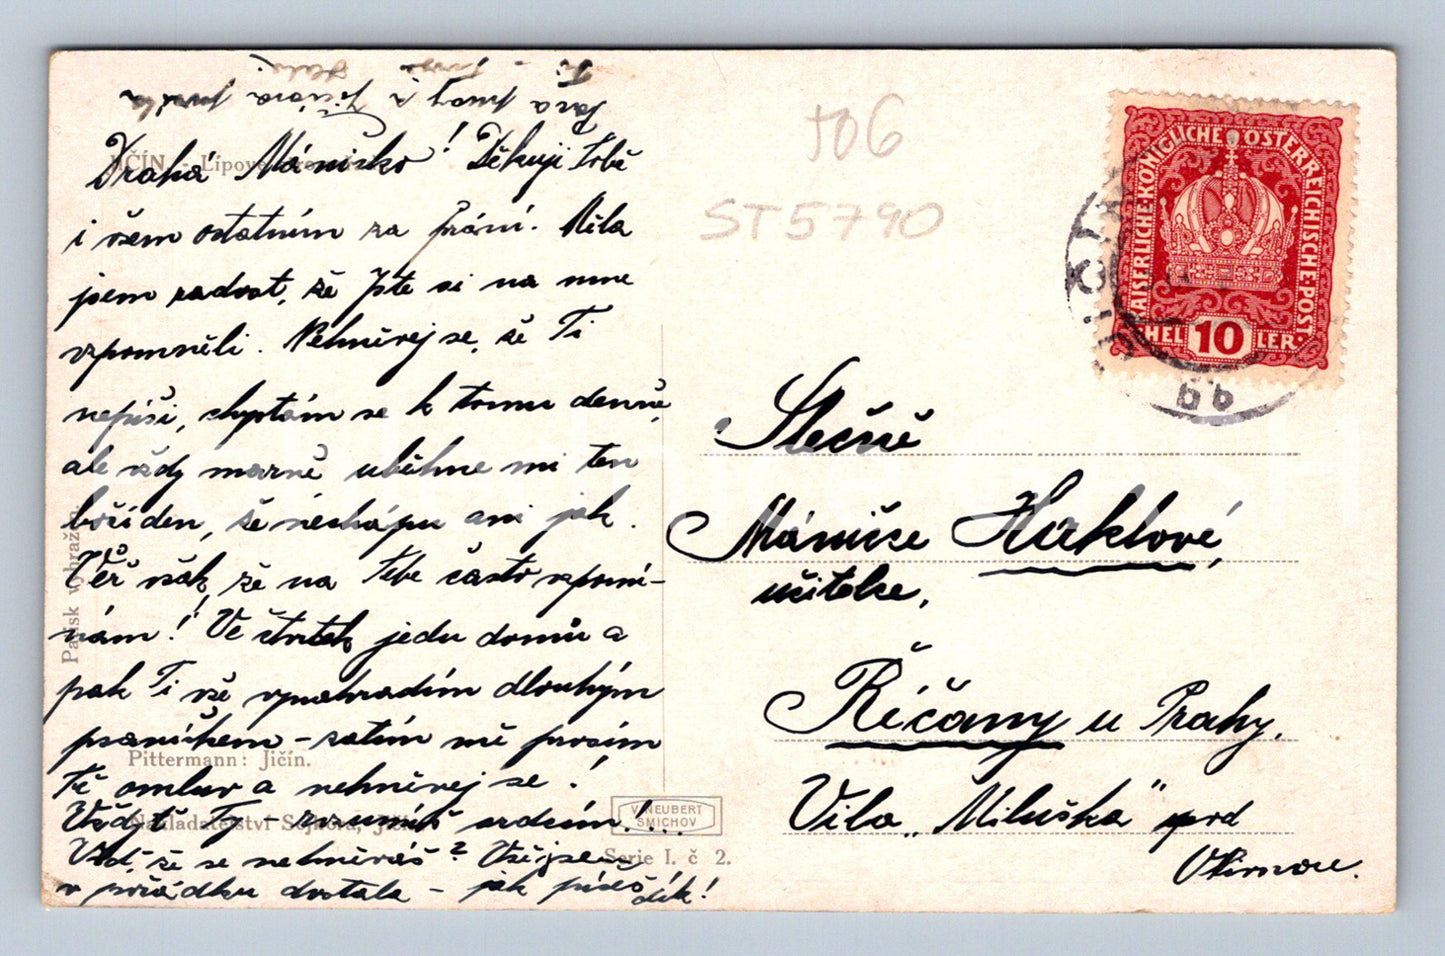 JIČÍN. - Lípové
Drahá Máničko! Děkuji Tobě
i všem ostatním za přání. Měla
jsem radost, že jste si na mne
vzpomněli. Nehněvej se, že Ti
nepíši, chystám se k tomu denně,
ale vždy marně uběhne mi ten
boží den, že nechápu ani jak.
Věř však, že na Tebe často vzpomí-
nám! Ve čtvrtek jedu domů a
pak Ti vše vynahradím dlouhým
psaníčkem - zatím mě prosím
Tě omluv a nehněvej se!
Vždyť Ty - rozumíš srdcím!...
Viď, že se nehněváš? Vše jsem
v pořádku dostala - jak píšeš
dík!
Pittermann: Jičín.
Serie I. č 2.
V. NEUBERT
SMÍCHOV
706
ST5790
KAISERLICHE KÖNIGLICHE ÖSTERREICHISCHE POST
HEL 10 LER
Slečně
Mánince
učitelce,
Říčany u Prahy.
Vila „Miluška" pod